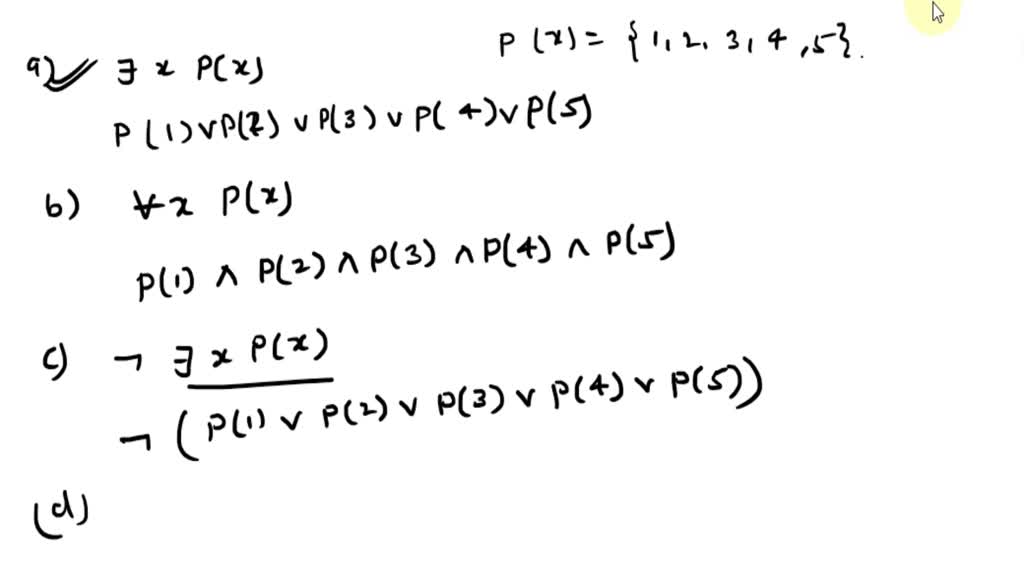 P(x) = {1, 2, 3, 4, 5}.
a) ∃ x P(x)
P(1) ∨ P(2) ∨ P(3) ∨ P(4) ∨ P(5)
b) ∀x P(x)
P(1) ∧ P(2) ∧ P(3) ∧ P(4) ∧ P(5)
c) ¬ ∃ x P(x)
¬ (P(1) ∨ P(2) ∨ P(3) ∨ P(4) ∨ P(5))
(d)